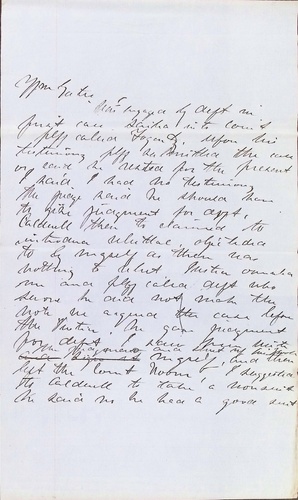 Wm Gates
was engaged by deft in
first case. into Court
plff called upon his
testimony plff submitted the case
or said he rested for the present
I said I had no testimony
the judge said he should have
to give judgment for deft,
Caldwell then claimed to
introduce rebuttal, objected
to by myself as there was
nothing to rebut. Justice overruled
me and plff called deft who
swore he did not make the
note we argued the case before
the Justice. He gave judgment
for deft. I
myself, and then
left the Court Room. I suggested
to Caldwell to take a nonsuit
he said no he had a good suit